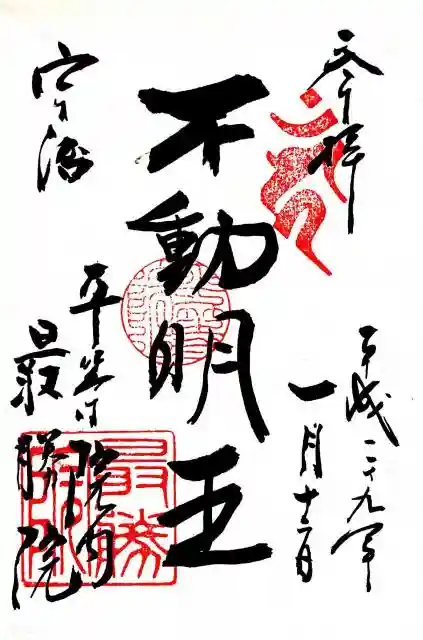 奉拝
平成二十九年
一月十二日
不動明王
宇治
平等院内
最勝院